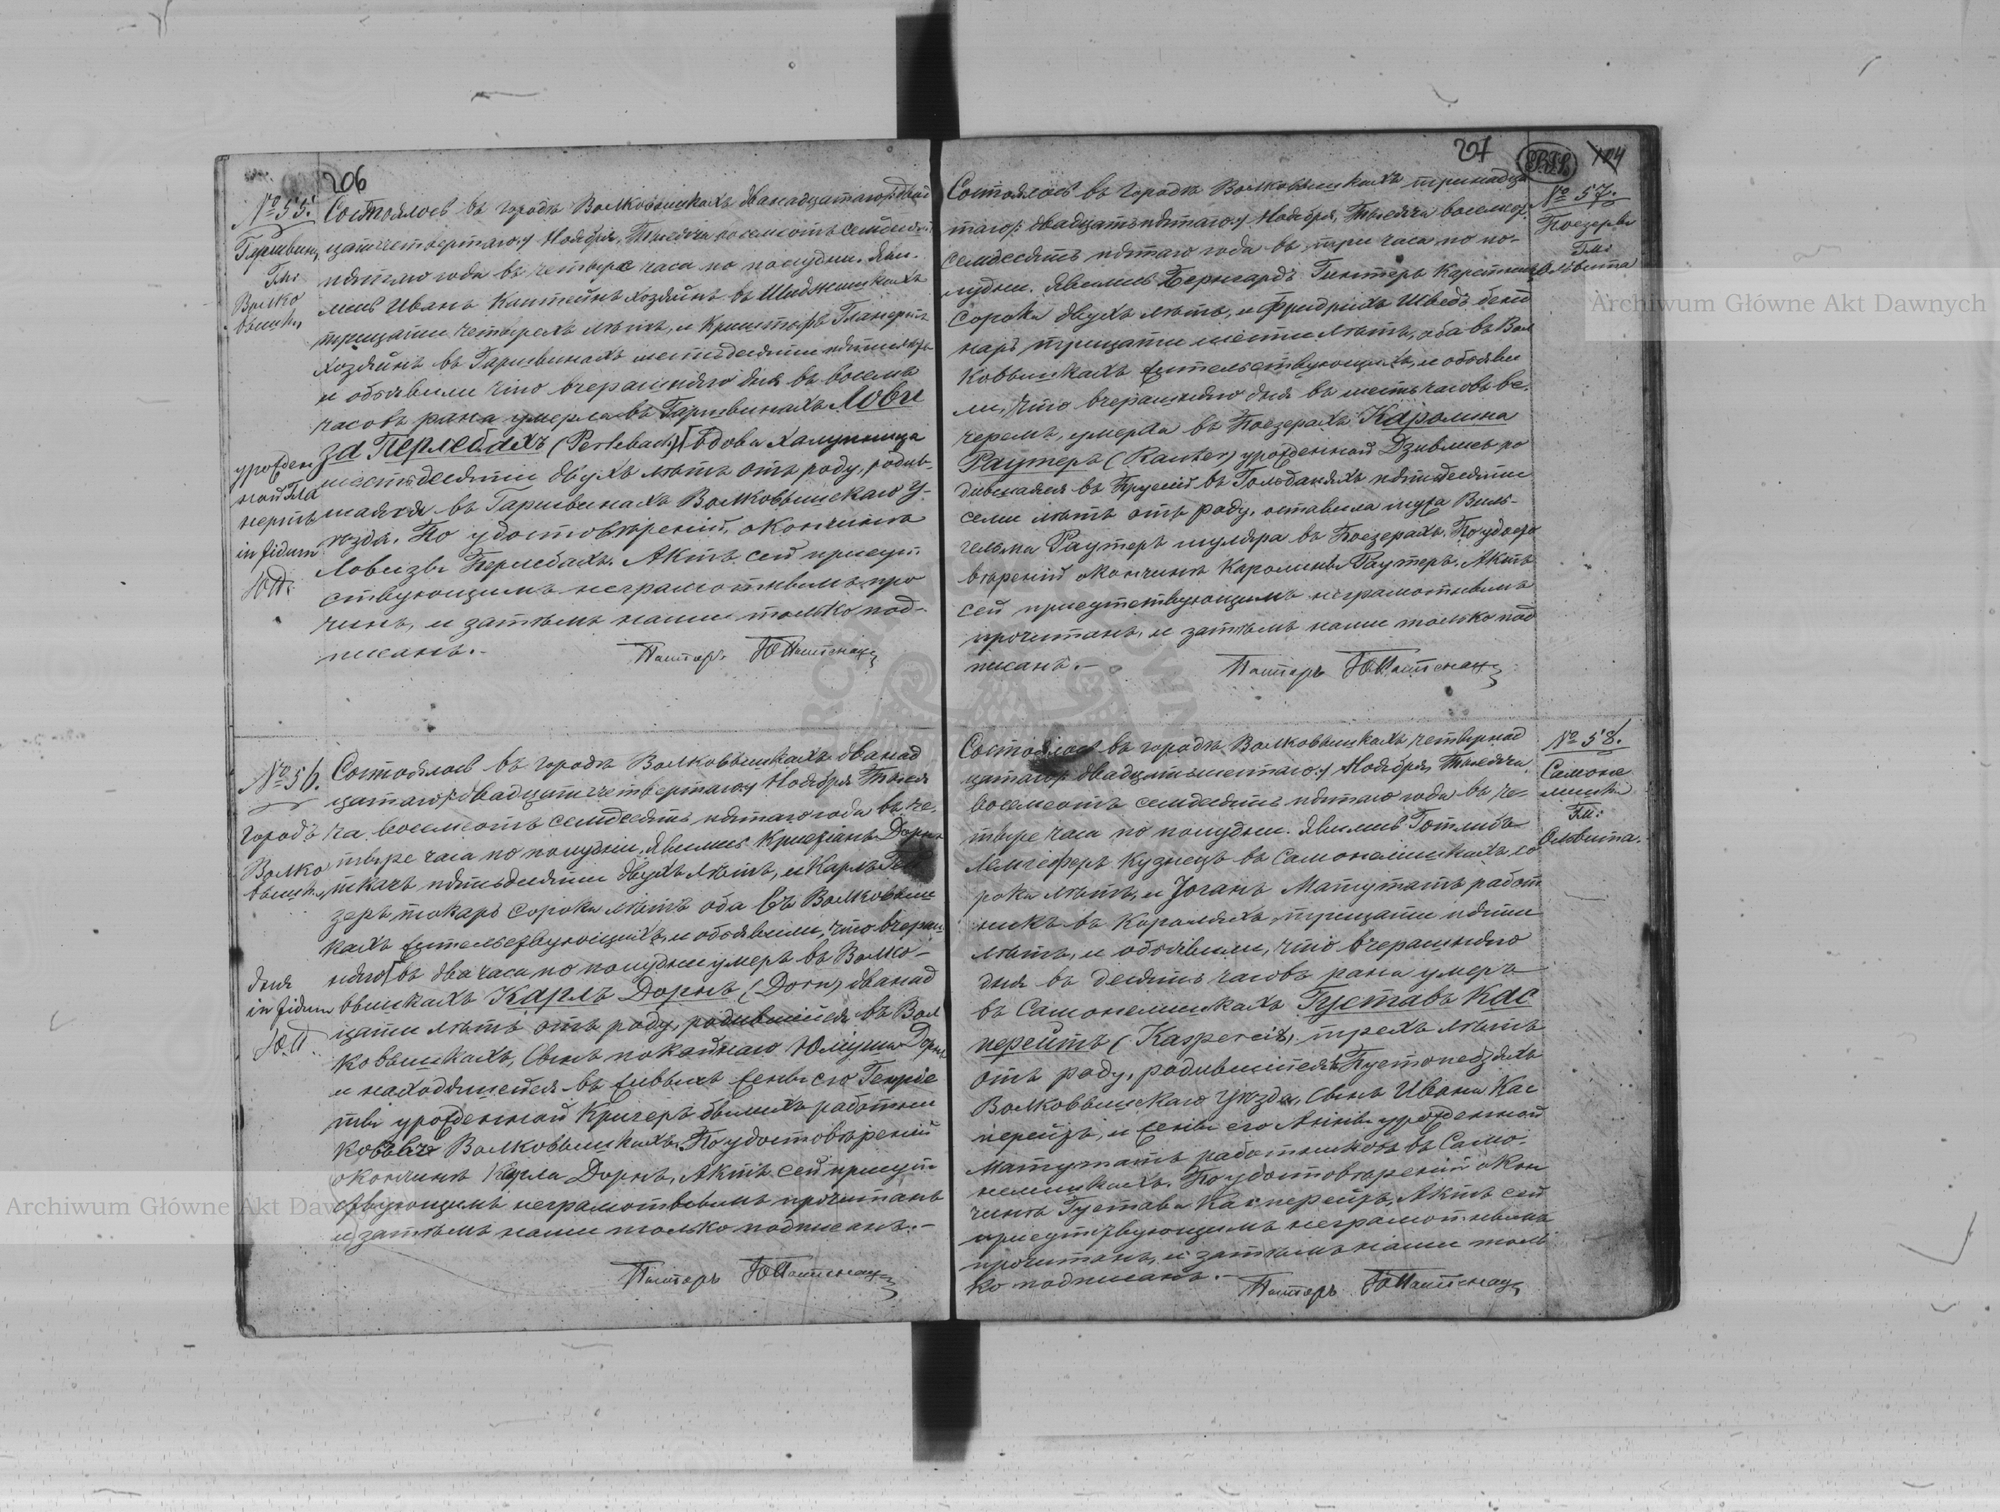 206
№ 55.
Гаршвины
Гм:
Волко
вышки
Состоялось въ городѣ Волковышкахъ двѣнадцатаго/:двад
цать четвертаго:/ Ноября, Тысяча восемсотъ семдесятъ
пятаго года въ четыре часа по полудни. Яви-
лись Иванъ хозяинъ въ
тридцати четырехъ лѣтъ, и Криштофъ Гланертъ
хозяинъ въ Гаршвинахъ шестидесяти пяти лѣтъ
и объявили что вчерашняго дня въ восемь
часовъ рана умерла въ Гаршвинахъ Лови
за Перлебахъ (Perlebach) вдова Халупница
шестидесяти двухъ лѣтъ отъ роду, родив-
шаяся въ Гаршвинахъ Волковышскаго у-
ѣзда. По удостовѣреніи, о кончинѣ
Ловизы Перлебахъ. Актъ сей присут
ствующимъ неграмотнымъ про
читанъ, и затѣмъ нами только под-
писанъ.-
урожден
ной Гла
нертъ
in fidum
Пасторъ
№ 56.
Городъ
Волко
вышки
Состоялось въ городѣ Волковышкахъ двѣнад
цатаго/:двадцать четвертаго:/ Ноября Тыся
ча восемсотъ семдесятъ пятаго года въ че-
тыре часа по полудни, явились Криштіанъ Дорнъ
ткачъ пятьдесяти двухъ лѣтъ, и Карлъ
зеръ, токарь сорока лѣтъ оба въ Волковыш
кахъ жительствующихъ, и объявили, что вчераш
няго въ два часа по полудни умеръ въ Волко-
вышкахъ Карлъ Дорнъ (Dorn) двѣнад
цати лѣтъ отъ роду, родившійся въ Вол
ковышкахъ, сынъ покойнаго Юлиуша Дорнъ
и находящейся въ живыхъ жены его Генріе
ты урожденной Кригеръ бывшихъ работни
ковъ въ Волковышкахъ. По удостовѣреніи
о кончинѣ Карла Дорнъ, Актъ сей присут-
ствующимъ неграмотнымъ прочитанъ
и затѣмъ нами только подписанъ.-
дня
in fidum
Пасторъ
207
124
№ 57.
Поезеры
Гм:
Ольвита
Состоялось въ городѣ Волковышкахъ тринадца
таго/:двадцать пятаго:/ Ноября, Тысяча восемсот
семдесятъ пятаго года въ три часа по по-
лудни. Явились Бернгардъ Гинтеръ
сорока двухъ лѣтъ, и Фридрихъ Шведъ
тридцати шести лѣтъ, оба въ Вол
ковышкахъ жительствующихъ, и объяви
ли, что вчерашняго дня въ шесть часовъ ве-
черемъ, умерла въ Поезерахъ Каролина
Раутеръ (Rauter) урожденной ро
дившаяся въ Пруссіи въ пятьдесяти
семи лѣтъ отъ роду, оставила мужа Виль-
гельма Раутеръ въ Поезерахъ. По удосто
вѣреніи о кончинѣ Каролины Раутеръ, Актъ
сей присутствующимъ неграмотнымъ
прочитанъ, и затѣмъ нами только под
писанъ.-
Пасторъ
№ 58.
Самоне
лишки
Гм:
Ольвита.
Состоялось въ городѣ Волковышкахъ четырнад
цатаго/:двадцать шестаго:/ Ноября, Тысяча
восемсотъ семдесятъ пятаго года въ че-
тыре часа по полудни. Явились Готлибъ
Кузнецъ въ Самонелишкахъ, со
рока лѣтъ, и Іоганъ Матутатъ работ
никъ въ Кораляхъ, тридцати пяти
лѣтъ, и объявили, что вчерашняго
дня въ десять часовъ рана умеръ
въ Самонелишкахъ Густавъ Кас
перейтъ (Kaspereit), трехъ лѣтъ
отъ роду, родившійся въ Пустопедзяхъ
Волковышскаго Уѣзда, сынъ Ивана Кас
перейтъ, и жены его Анны урожденной
Матутатъ работниковъ въ Само-
нелишкахъ. По удостовѣреніи о кон
чинѣ Густава Касперейтъ, Актъ сей
присутствующимъ неграмотнымъ
прочитанъ, и затѣмъ нами толь
ко подписанъ.-
Пасторъ
Archiwum Główne Akt Dawnych
Archiwum Główne Akt Dawnych